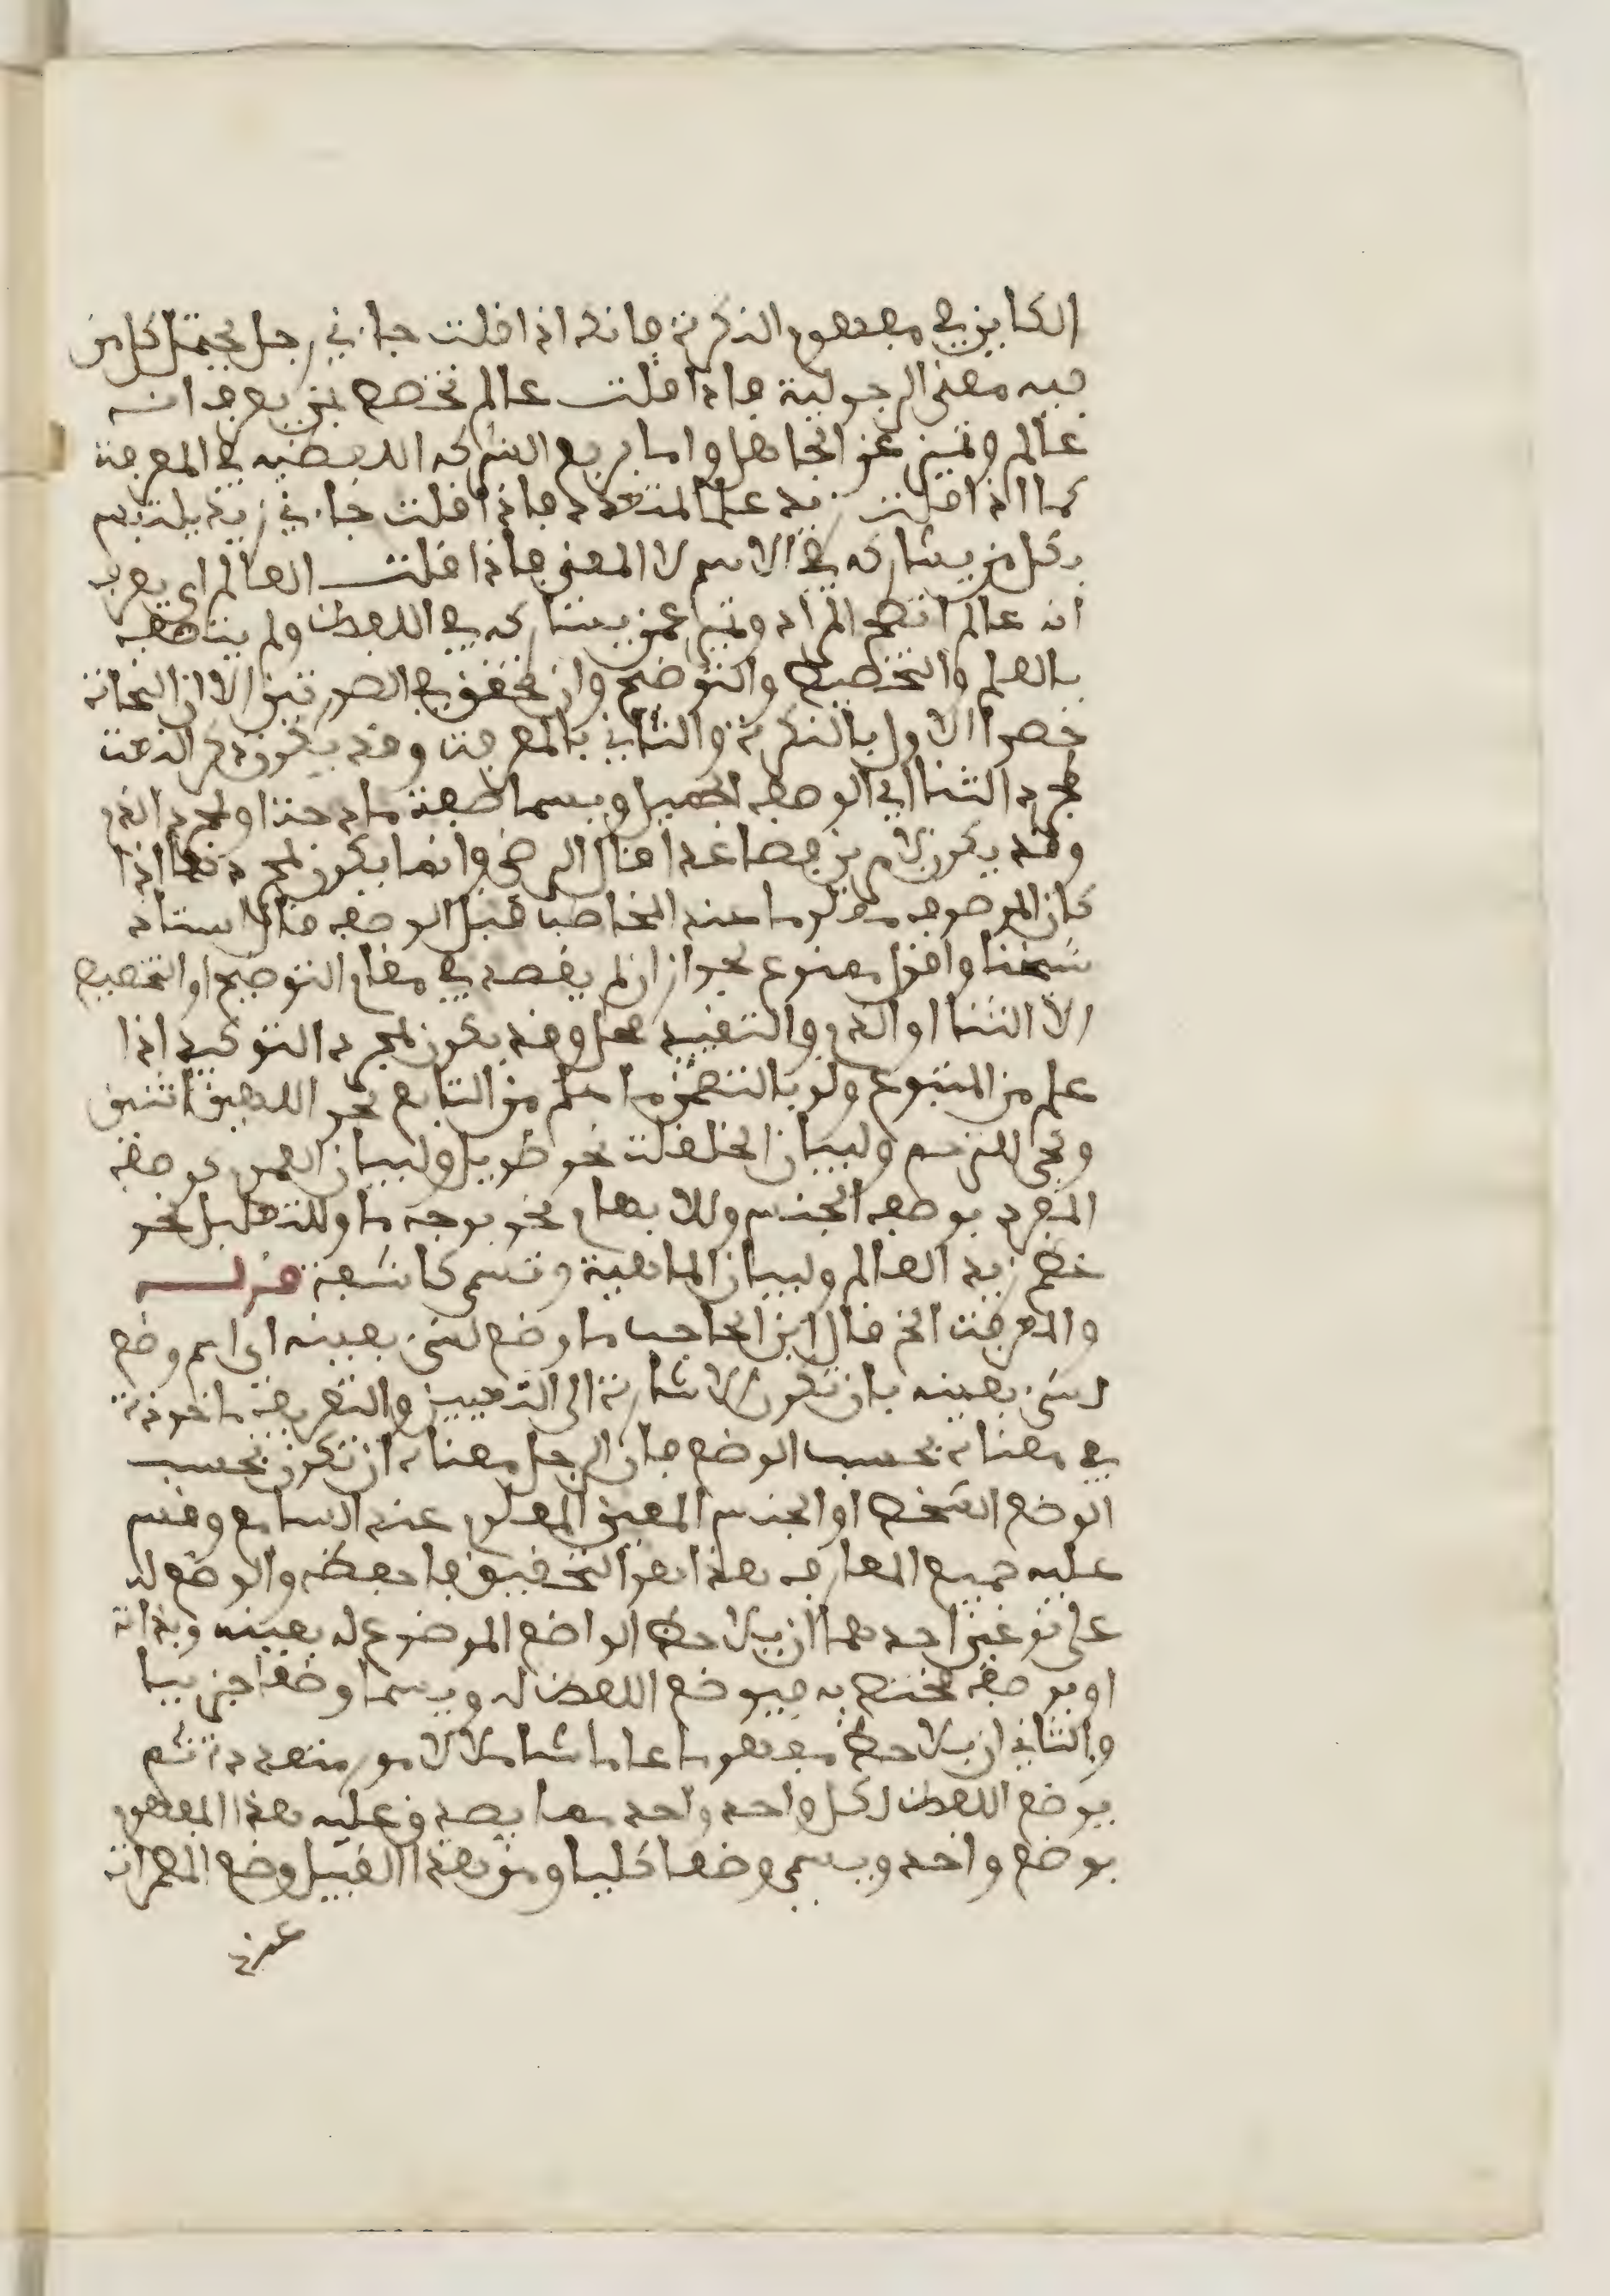 الكاين في مفهوم النكرة فانك اذا قلت جاءني رجل يحتمل كل من
فيه معنى الرجولية فاذا قلت عالم تخصص بمن يعرف انه
عالم وتميز عن الجاهل واما رفع الشركة اللفظية في المعرفة
كما اذا قلت زيد علما لمتعدد فاذا قلت جاءني زيد يلتبس
بكل من يشاركه في الاسم لا المعنى فاذا قلت العالم اي يعرف
انه عالم اتضح المراد وتميز عمن يشاركه في اللفظ ولم يتاصف
بالعلم والتخصيص والتوضيح وان تحقق في الصورتين الا ان النحاة
خصوا الاول بالنكرة والثاني بالمعرفة وقد يكون ذكر النعت
لمجرد الثنا اي الوصف الجميل ويسما صفة مادحة او لمجرد الذم
وقد يكون لامرين فصاعدا قال الرضي وانما يكون لمجرد ثنا اذا
كان الموصوف معلوما عند المخاطب قبل الوصف قال استاذ
شيخنا واقول ممنوع لجواز ان لم يقصد في مقام التوضيح او التخصيص
الا الثنا او الذم والتقييد محل وقد يكون لمجرد التوكيد اذا
علم من المتبوع ولو بالتضمن ما علم من التابع نحو الاهين اثنين
ويجي للترحم ولبيان الخلقة نحو طويل ولبيان العموم كوصف
المفرد بوصف الجنس وللابهام نحو بوجه ما وللتعليل نحو
عظم زيد العالم ولبيان الماهية وتسمى كاشفة قوله
والمعرفة الخ قال ابن الحاجب ما وضع لشيء بعينه اي اسم وضع
لشيء بعينه بان تكون الاشارة الى التعيين والتعريف ماخوذة
في معناه بحسب الوضع فان الرجل معناه ان تكون بحسب
الوضع الشخص او الجنس المعين المعلوم عند السامع وقس
عليه جميع المعارف هذا هو التحقيق فاحفظه والوضع له
على نوعين احدهما ان يلاحظ الواضع الموضوع له بعينه وبذاته
او بوصف مختص به فيوضع اللفظ له ويسما وضعا جزييا
والثاني ان يلاحظ مفهوما عاما شاملا لامور متعددة ثم
يوضع اللفظ لكل واحد واحد مما يصدق عليه هذا المفهوم
بوضع واحد ويسمى وضعا كليا ومن هذا القبيل وضع المضمرات